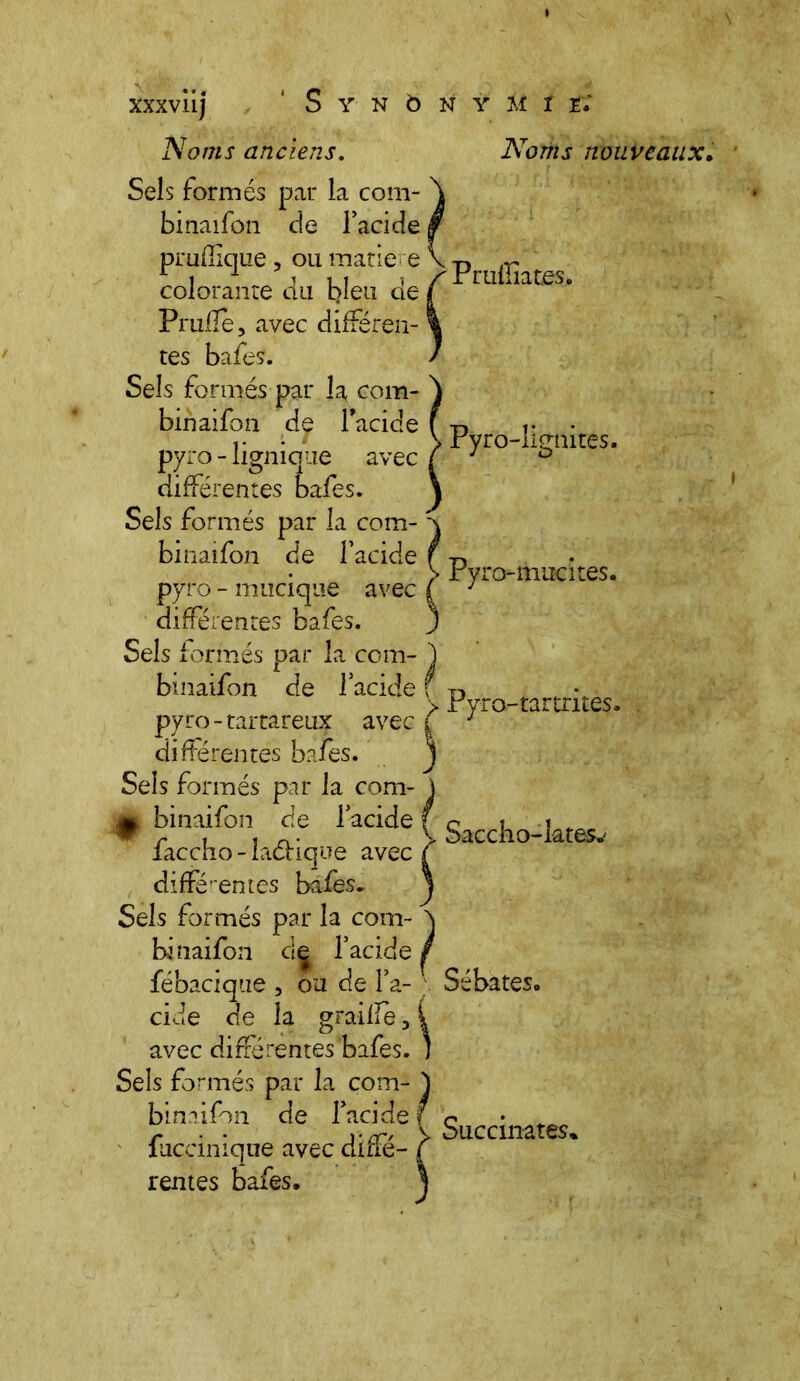 xxxviij SYNONYMIE.
Noms anciens. Noms nouveaux.
Sels formés par la com-
binaiſon de l'acide
pruſſique, ou matiere
colorante du bleu de
Pruſſe, avec différen-
tes baſes.
Pruſſiates.
Sels formés par la com-
binaiſon de l'acide
pyro-lignique avec
différentes baſes.
Pyro-lignites.
Sels formés par la com-
binaiſon de l'acide
pyro-mucique avec
différentes baſes.
Pyro-mucites.
Sels formés par la com-
binaiſon de l'acide
pyro-tartareux avec
différentes baſes.
Pyro-tartrites.
Sels formés par la com-
binaiſon de l'acide
ſaccho-lactique avec
différentes baſes.
Saccho-lates.
Sels formés par la com-
binaiſon de l'acide
ſébacique, ou de l'a-
cide de la graiſſe,
avec différentes baſes.
Sébates.
Sels formés par la com-
binaiſon de l'acide
ſuccinique avec diffé-
rentes baſes.
Succinates.